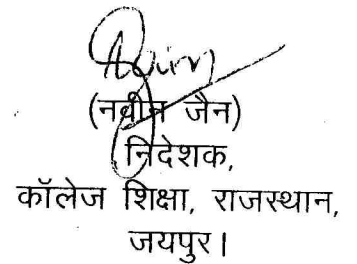 (नवीन जैन)
निदेशक,
कॉलेज शिक्षा, राजस्थान,
जयपुर।